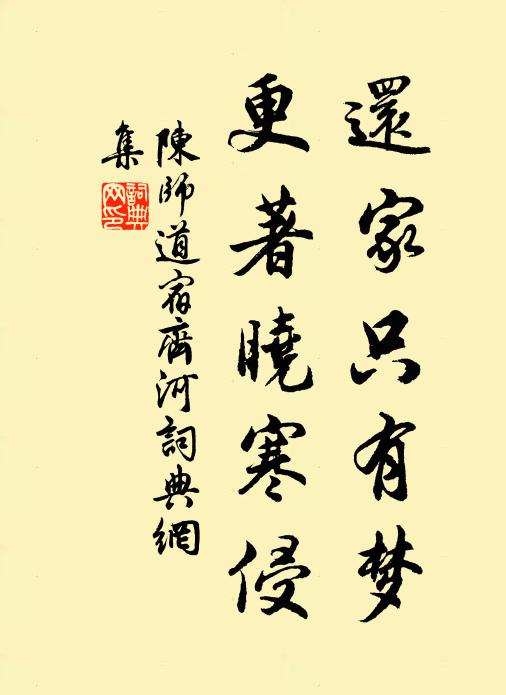 還家只有梦
更著曉寒侵
陳師道宿齊河詞典網
集
詞典
网印